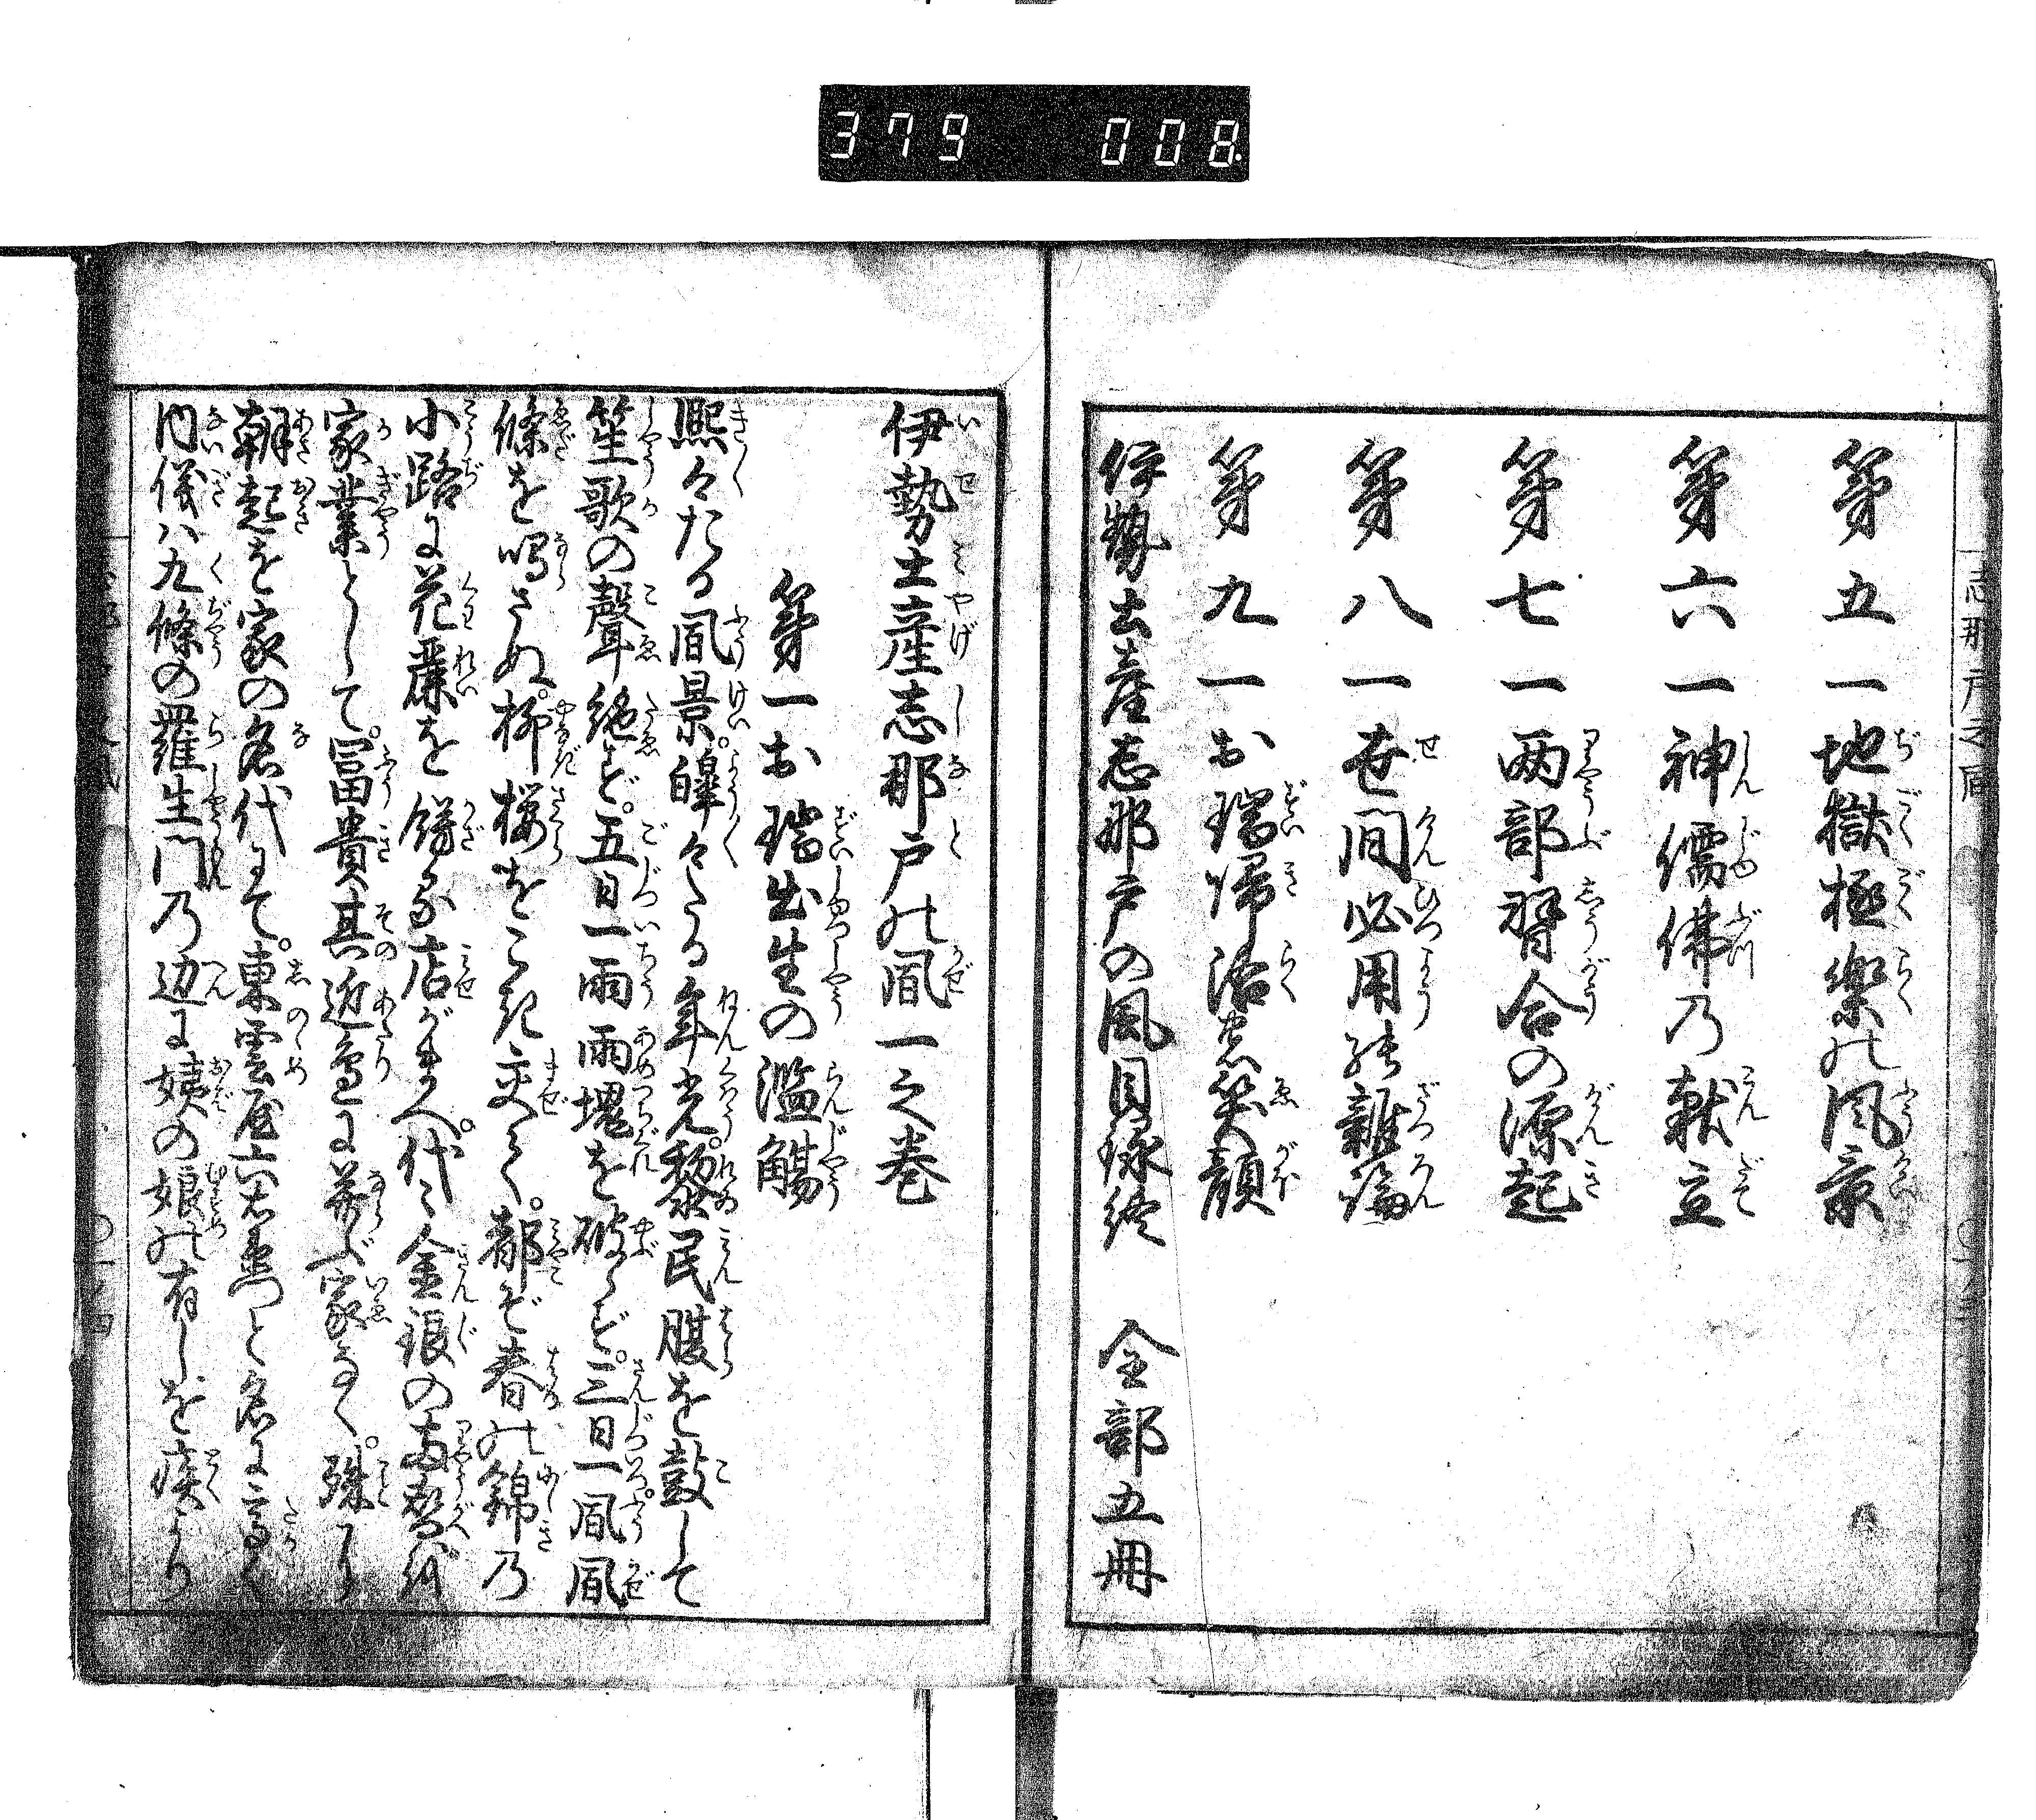 379 008
第五一地獄極樂の風景
第六一神儒佛乃献立
第七一両部習合の源起
第八一世間必用の雑論
第九一お瑞帰洛の笑顔
伊勢土産志那戸の風目録終 全部五冊
伊勢土産志那戸の風一之巻
第一お瑞出生の濫觴
熈々たる風景。皥々たる年光。黎民腹を鼓して
笙歌の聲絶ず。五日一雨雨塊を破らず。三日一風風
條を鳴さぬ。柳櫻をこき交て。都ぞ春の錦乃
小路に花簾を餝る店がまへ。代々金銀の両替を
家業として。冨貴其近邊に並ぶ家なく。殊に
朝起を家の名代にて。東雲屋六右衛門と名に高く
内儀ハ九條の羅生門乃辺に姨の娘の有しを疾より